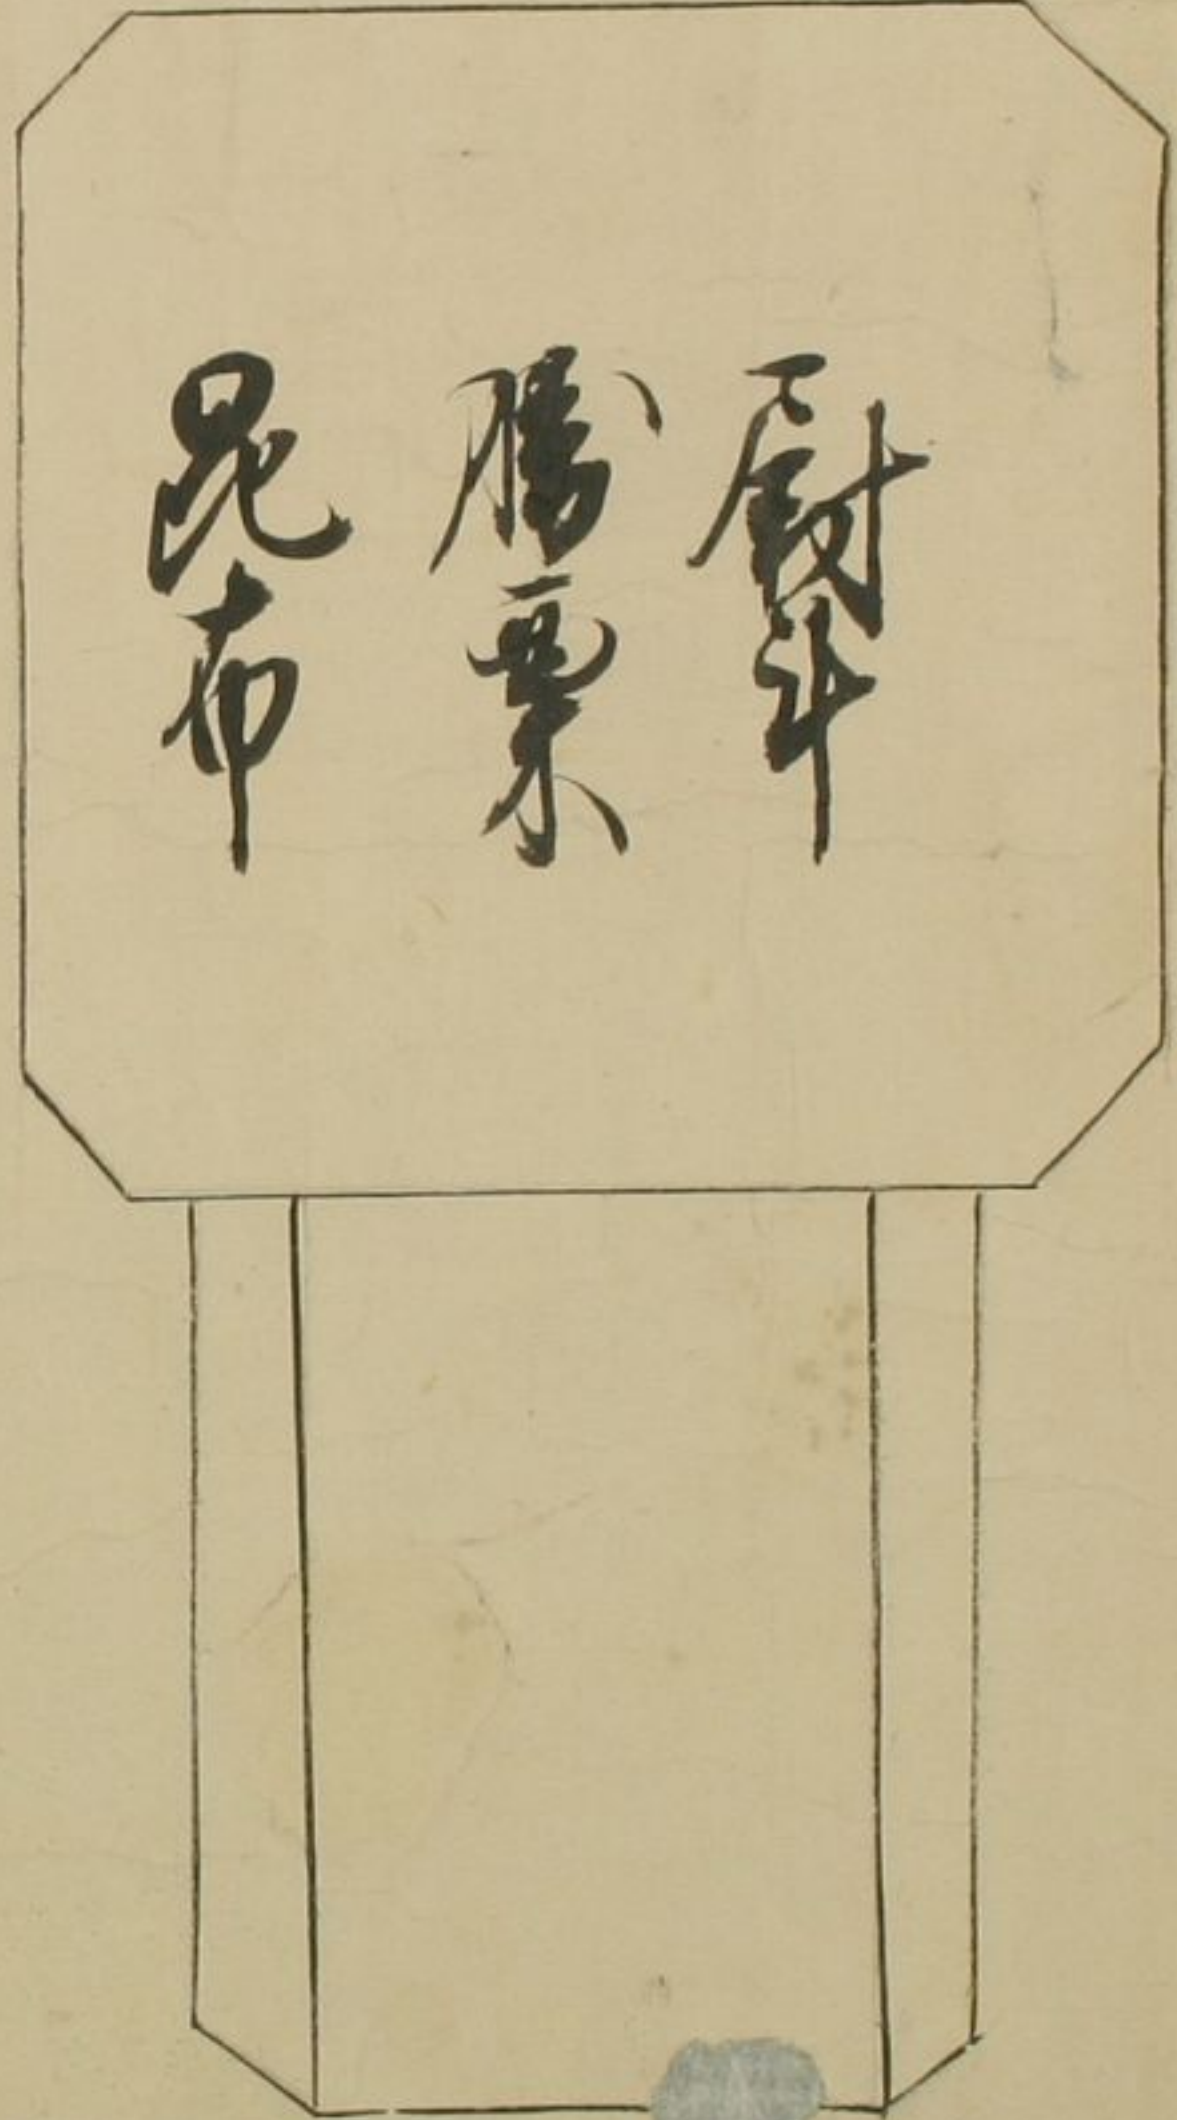 尉斗
勝栗
昆布